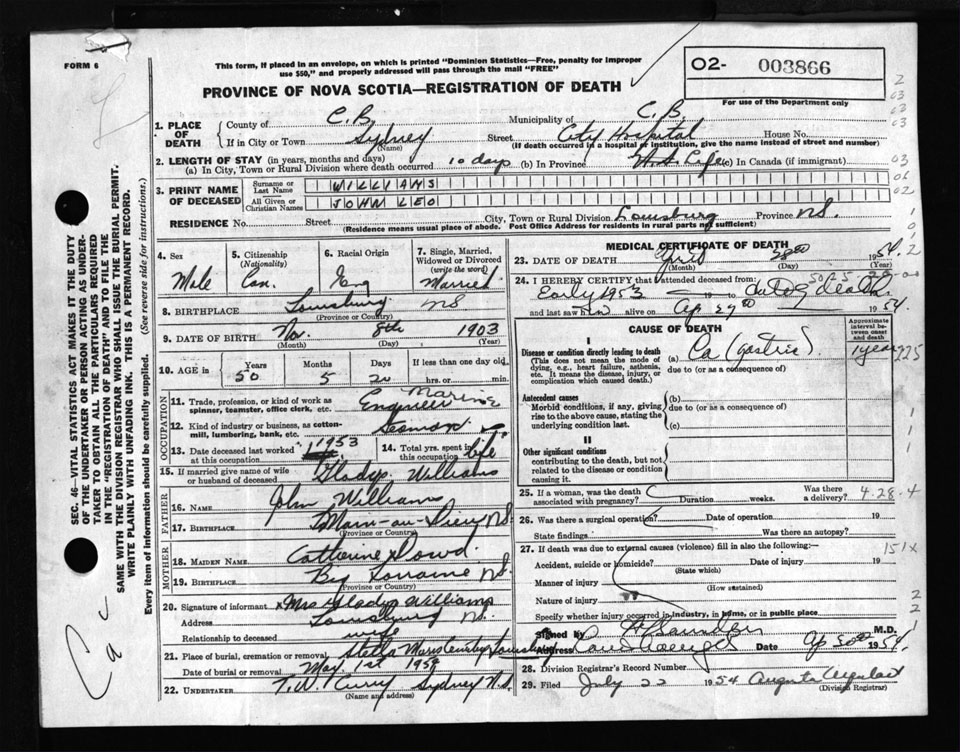 FORM 6
This form, if placed in an envelope, on which is printed "Dominion Statistics—Free, penalty for improper
use $50," and properly addressed will pass through the mail "FREE"
O2- 003866
For use of the Department only
PROVINCE OF NOVA SCOTIA—REGISTRATION OF DEATH
1. PLACE OF DEATH
County of C.B. Municipality of C.B.
If in City or Town Sydney (Name) Street City Hospital House No.
(If death occurred in a hospital or institution, give the name instead of street and number)
2. LENGTH OF STAY (in years, months and days)
(a) In City, Town or Rural Division where death occurred 10 days (b) In Province Life (c) In Canada (if immigrant)
3. PRINT NAME OF DECEASED
Surname or Last Name WILLIAMS
All Given or Christian Names JOHN LEO
RESIDENCE No. Street City, Town or Rural Division Louisburg Province N.S.
(Residence means usual place of abode. Post Office Address for residents in rural parts not sufficient)
4. Sex Male
5. Citizenship (Nationality) Can.
6. Racial Origin Eng
7. Single, Married, Widowed or Divorced (write the word) Married
8. BIRTHPLACE Louisburg NS
(Province or Country)
9. DATE OF BIRTH Nov. 8th 1903
(Month) (Day) (Year)
10. AGE in Years 50 Months 5 Days 20 If less than one day old. hrs. or min.
OCCUPATION
11. Trade, profession, or kind of work as spinner, teamster, office clerk, etc. Marine Engineer
12. Kind of industry or business, as cotton-mill, lumbering, bank, etc. Seaman
13. Date deceased last worked at this occupation 1953
14. Total yrs. spent in this occupation life
15. If married give name of wife or husband of deceased Gladys Williams
FATHER
16. NAME John Williams
17. BIRTHPLACE Main-au-Dieu N.S.
(Province or Country)
MOTHER
18. MAIDEN NAME Catherine Dowd
19. BIRTHPLACE Big Lorraine N.S.
(Province or Country)
20. Signature of informant x Mrs Gladys Williams
Address Louisburg N.S.
Relationship to deceased wife
21. Place of burial, cremation or removal Stella Maris
Date of burial or removal May 1st 1954
22. UNDERTAKER T. W. Curry Sydney N.S.
(Name and address)
MEDICAL CERTIFICATE OF DEATH
23. DATE OF DEATH April 28th 1954
(Month) (Day) (Year)
24. I HEREBY CERTIFY that I attended deceased from:
Early 1953 to date of death
and last saw him alive on Ap 27th 1954.
CAUSE OF DEATH
Approximate interval between onset and death
I
Disease or condition directly leading to death (a) Ca (gastric) 1 year
(This does not mean the mode of dying, e.g., heart failure, asthenia, etc. It means the disease, injury, or complication which caused death.)
due to (or as a consequence of)
Antecedent causes (b)
Morbid conditions, if any, giving rise to the above cause, stating the underlying condition last.
due to (or as a consequence of)
(c)
II
Other significant conditions
contributing to the death, but not related to the disease or condition causing it.
25. If a woman, was the death associated with pregnancy? Duration weeks. Was there a delivery?
4.28
26. Was there a surgical operation? Date of operation 19
State findings Was there an autopsy?
27. If death was due to external causes (violence) fill in also the following:—
151x
Accident, suicide or homicide? Date of injury 19
(State which)
Manner of injury
(How sustained)
Nature of injury
Specify whether injury occurred in industry, in home, or in public place
Signed by M.D.
Address Date Ap 30th 1954
28. Division Registrar's Record Number
29. Filed July 22 1954
(Division Registrar)
SEC. 46—VITAL STATISTICS ACT MAKES IT THE DUTY
OF THE UNDERTAKER OR PERSON ACTING AS UNDERTAKER
TO OBTAIN ALL THE PARTICULARS REQUIRED
IN THE "REGISTRATION OF DEATH" AND TO FILE THE
SAME WITH THE DIVISION REGISTRAR WHO SHALL ISSUE THE BURIAL PERMIT.
WRITE PLAINLY WITH UNFADING INK. THIS IS A PERMANENT RECORD.
Every item of information should be carefully supplied. (See reverse side for instructions.)
Ca